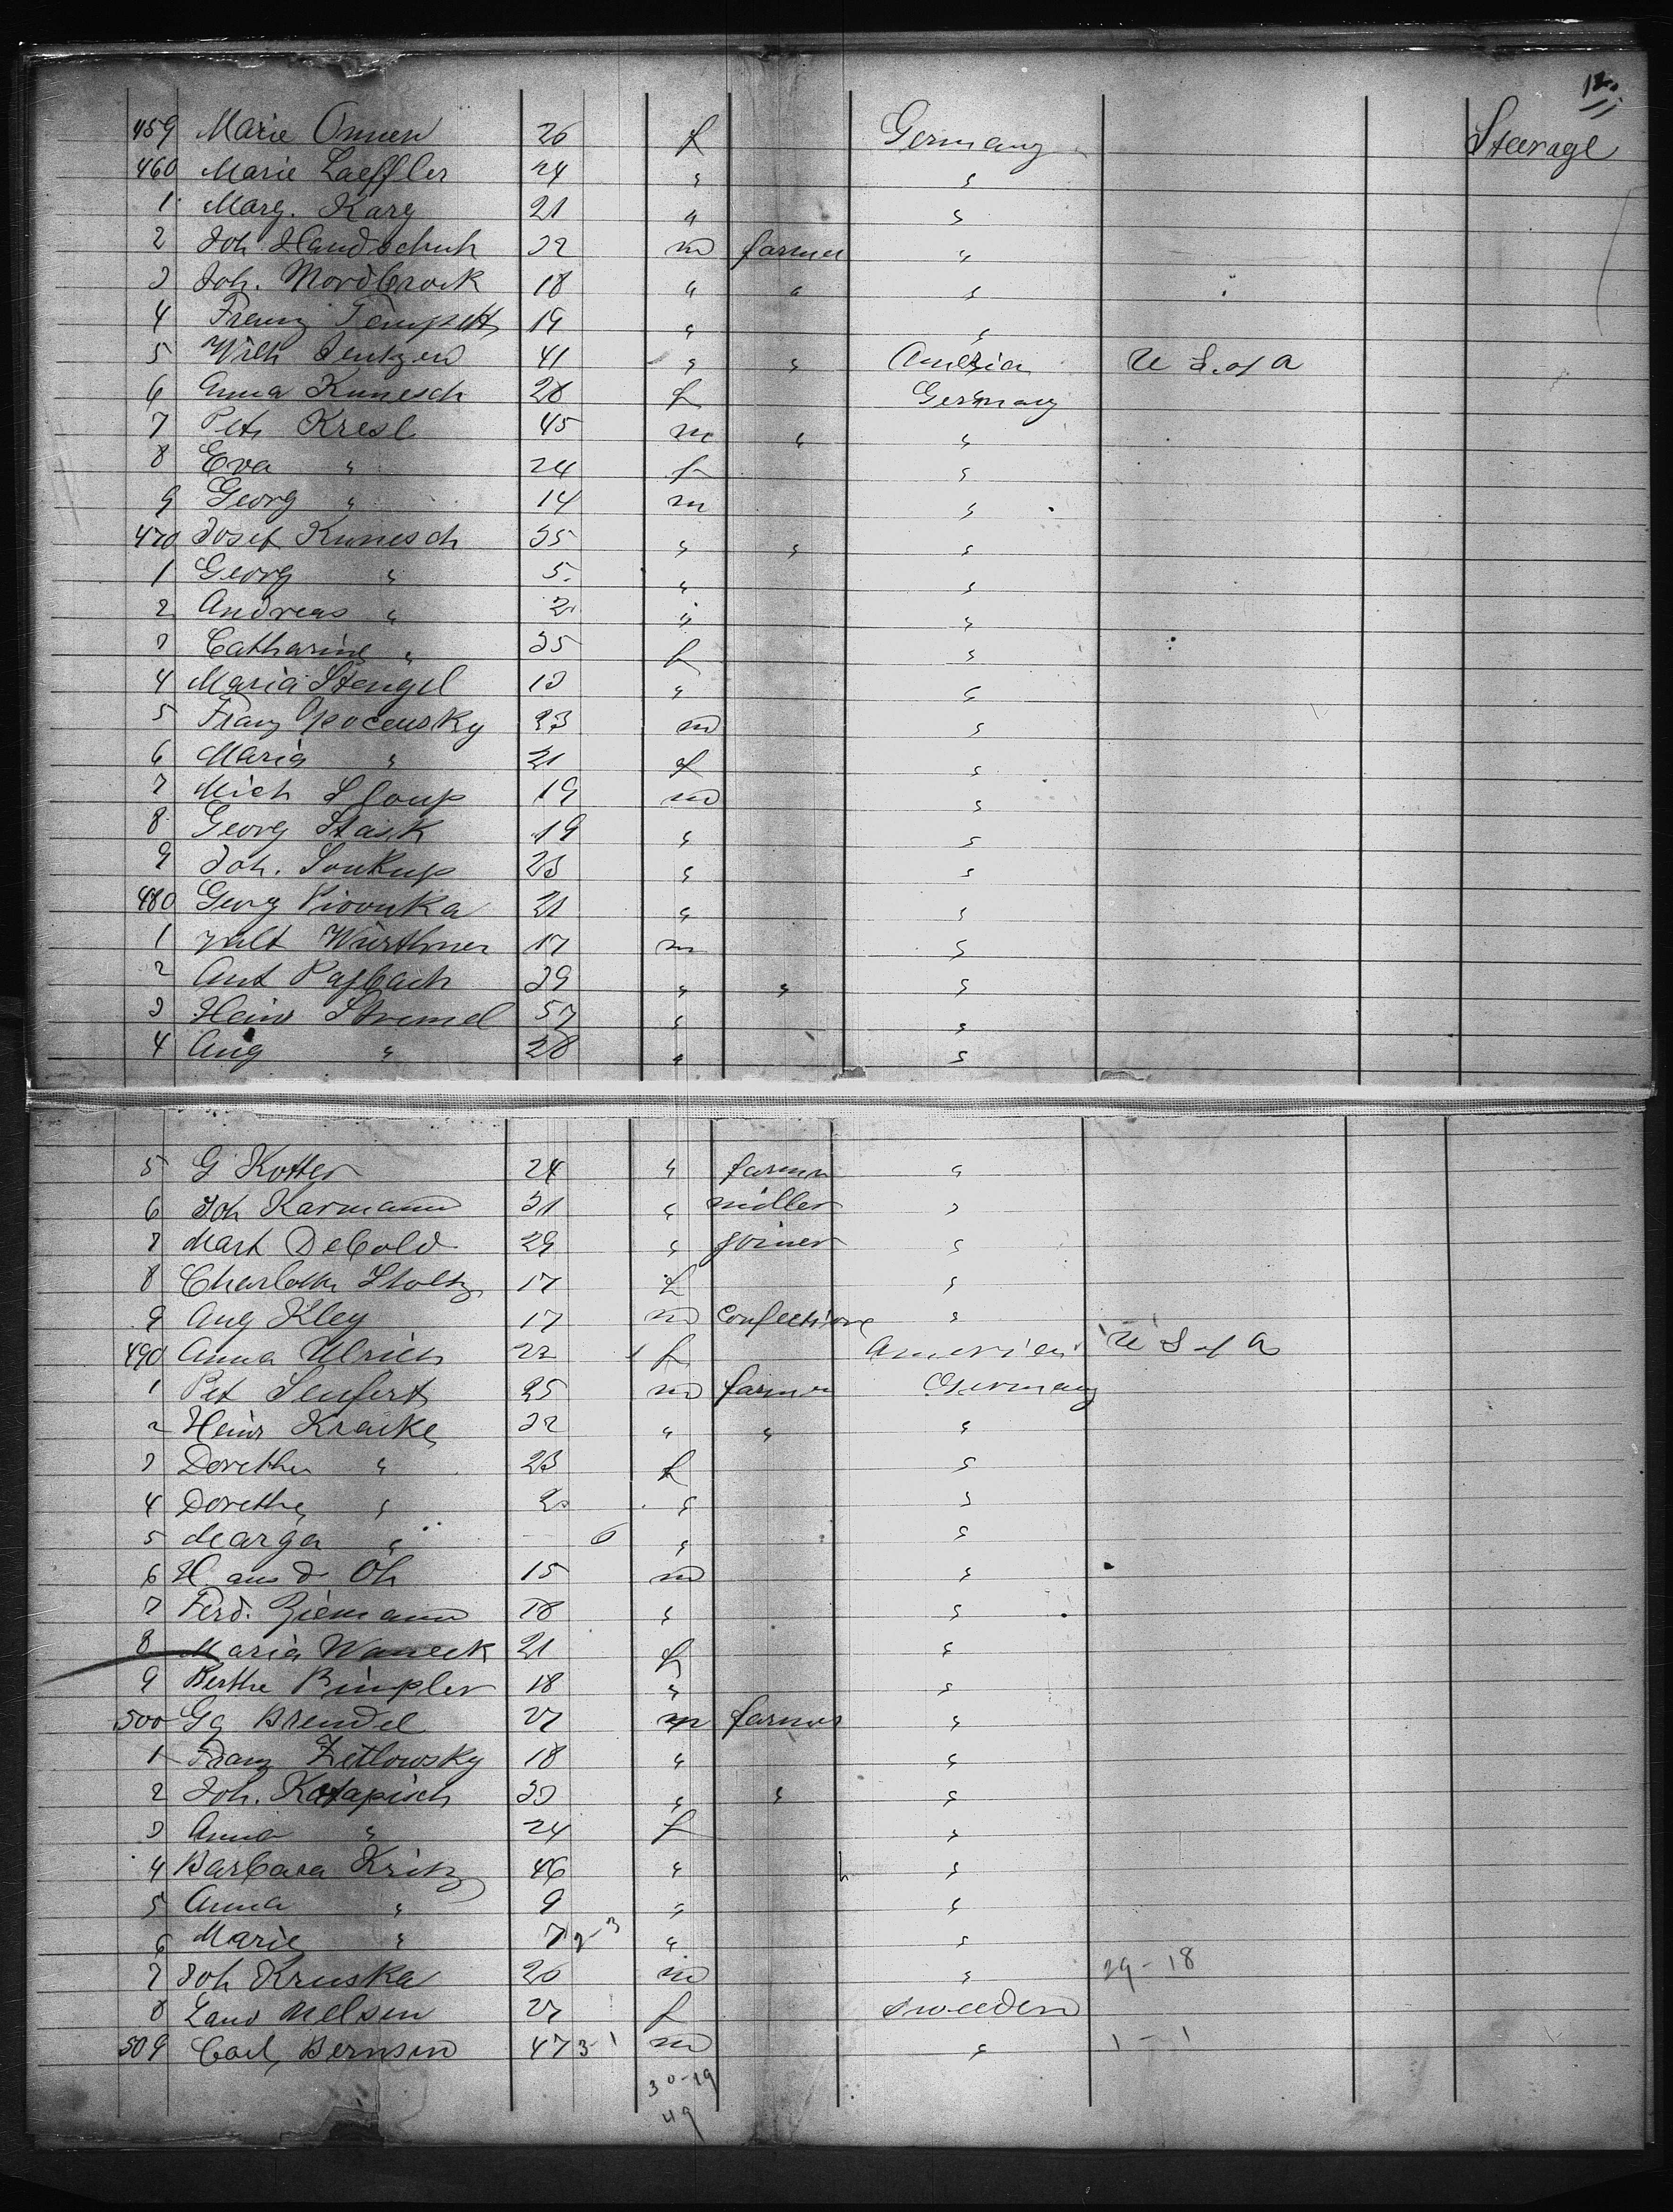 12.
459 Marie Onnen 26 f Germany Steerage
460 Marie Laeffler 24 " "
1 Marg. Karg 21 " "
2 Joh. Handschuh 32 m farmer "
3 Joh. Nordbrock 18 " " "
4 Franz 19 " "
5 Wilh Jentzen 41 " " America U S. of A
6 Anna Kunesch 28 f Germany
7 Pet. Kresl 45 m " "
8 Eva " 24 f "
9 Georg " 14 m "
470 Josef Kunesch 35 " " "
1 Georg " 5. " "
2 Andreas " 2. " "
3 Catharine " 35 f "
4 Maria Stengel 13 " "
5 Franz Opocensky 23 m "
6 Maria " 21 f "
7 Mich Sloup 19 m "
8 Georg Stask 19 " "
9 Joh. Soukup 23 " "
480 Georg Pivonka 21 " "
1 Würthner 17 m "
2 Ant 39 " " "
3 Heinr Stremel 57 " "
4 Aug " 28 " "
5 G Kotter 24 " farmer "
6 Joh Karmann 31 " miller "
7 Mart Debold 29 " joiner "
8 Charlotte Stoltz 17 f "
9 Aug Kley 17 m confectione "
490 Anna Ulrich 22 f America U S of A
1 Pet Seufert 25 m farmer Germany
2 Heinr Kracke 32 " " "
3 Dorethe " 23 f "
4 Dorethe " 2. " "
5 Marga " 6 " "
6 H aus d Oh 15 m "
7 Ferd. Ziemann 18 " "
8 Maria Waneck 21 f "
9 Berthe Rimpler 18 " "
500 Gg Brendel 27 m farmer "
1 Franz Zetlowsky 18 " "
2 Joh. Katapisch 33 " " "
3 Anna " 24 f "
4 Barbara Kritz 46 " "
5 Anna " 9 " "
6 Marie " 7 2-3 " "
7 Joh Kruska 20 m " 29-18
8 Nelsen 27 f Sweeden
509 Carl Bernsen 47 3-1 m " 1-1
30-19
49